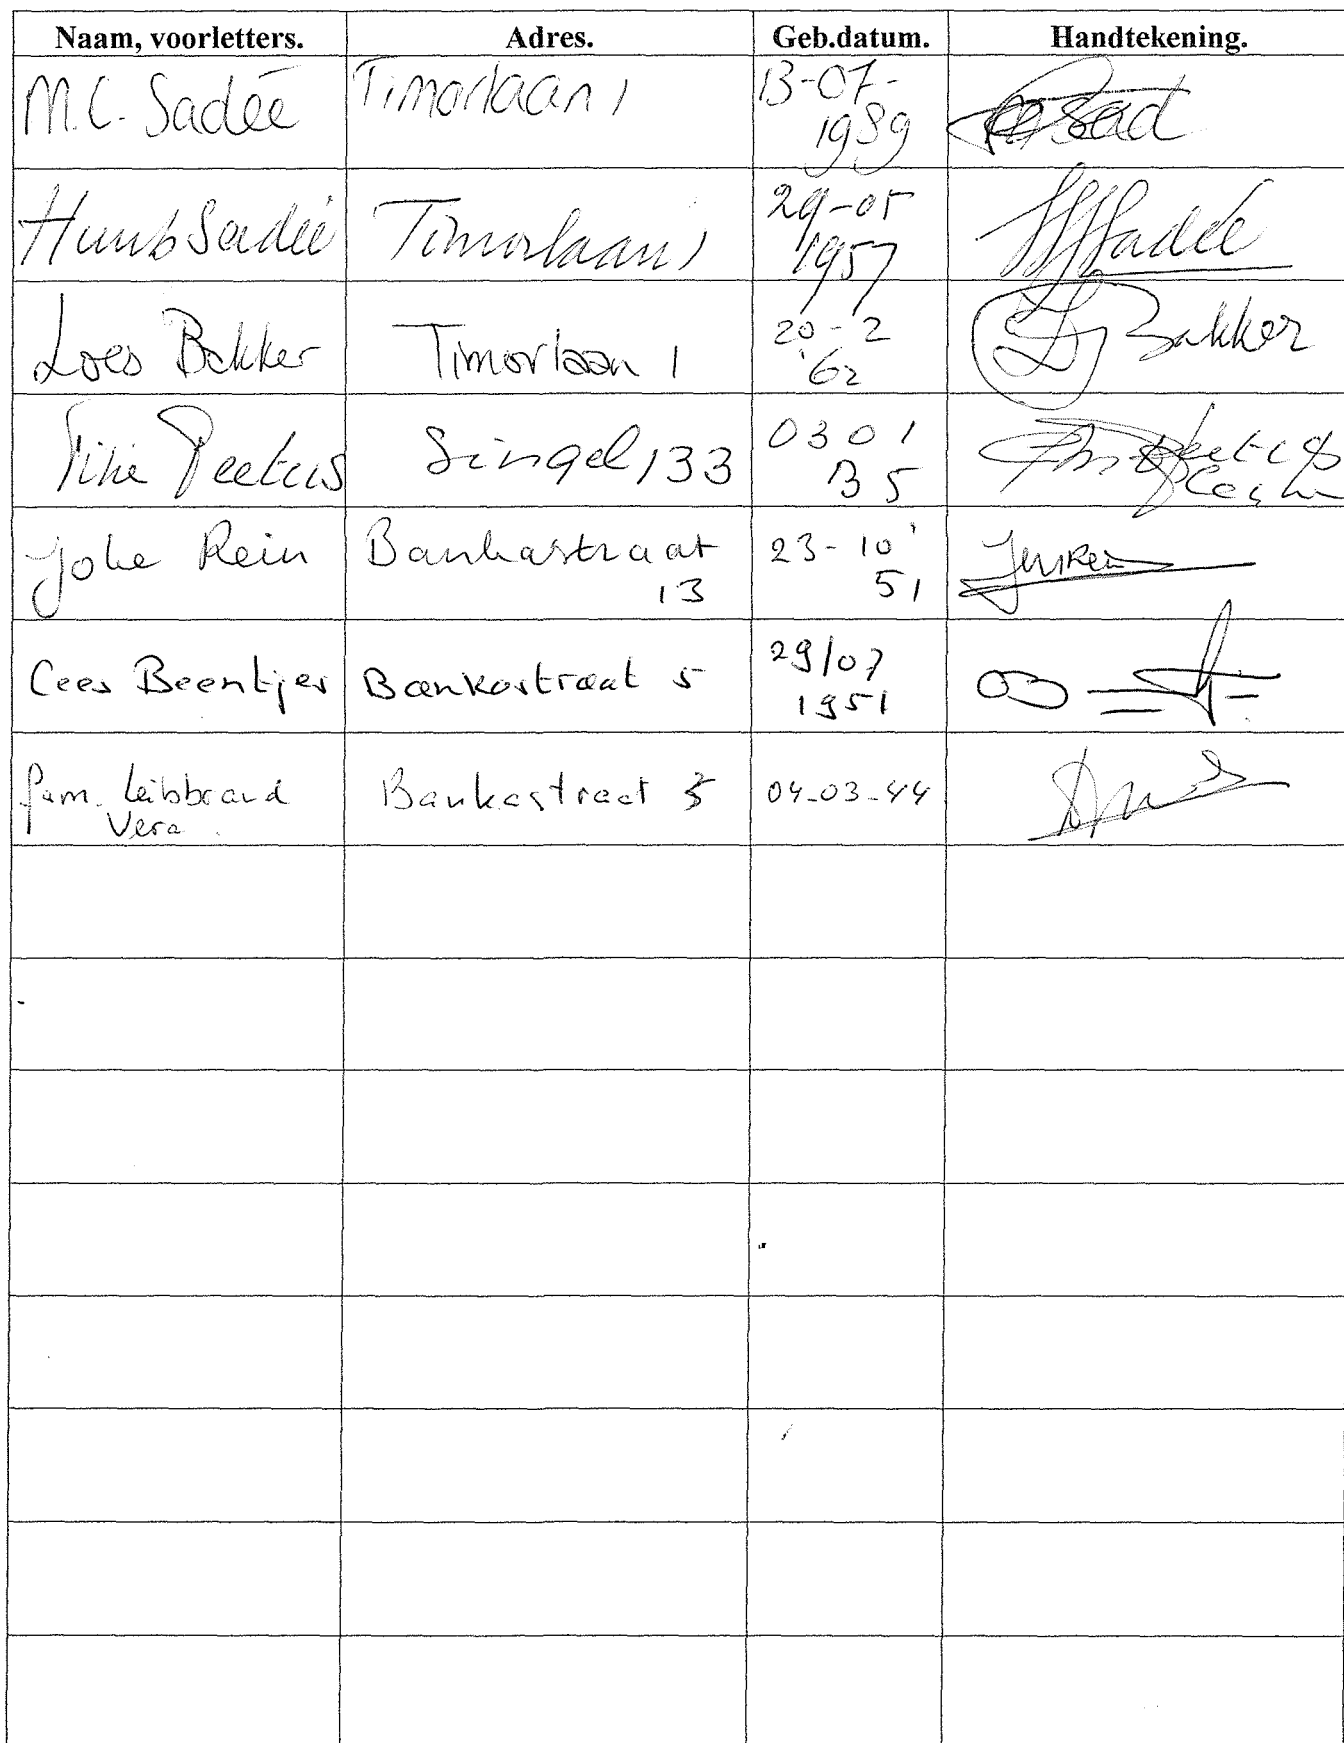 Naam, voorletters. Adres. Geb.datum. Handtekening.
M.C. Sadée Timorlaan 1 13-07-
1989
Huub Sadée Timorlaan 1 29-05
1957
Sadée
Loes Bakker Timorlaan 1 20-2
'62
Bakker
Peeters Singel 133 0301
35
Joke Rein Bankastraat 23-10'
13 51
Cees Beentjes Bankastraat 5 29/07
1951
fam. Leibbrand Bankastraat 04-03-44
Vera